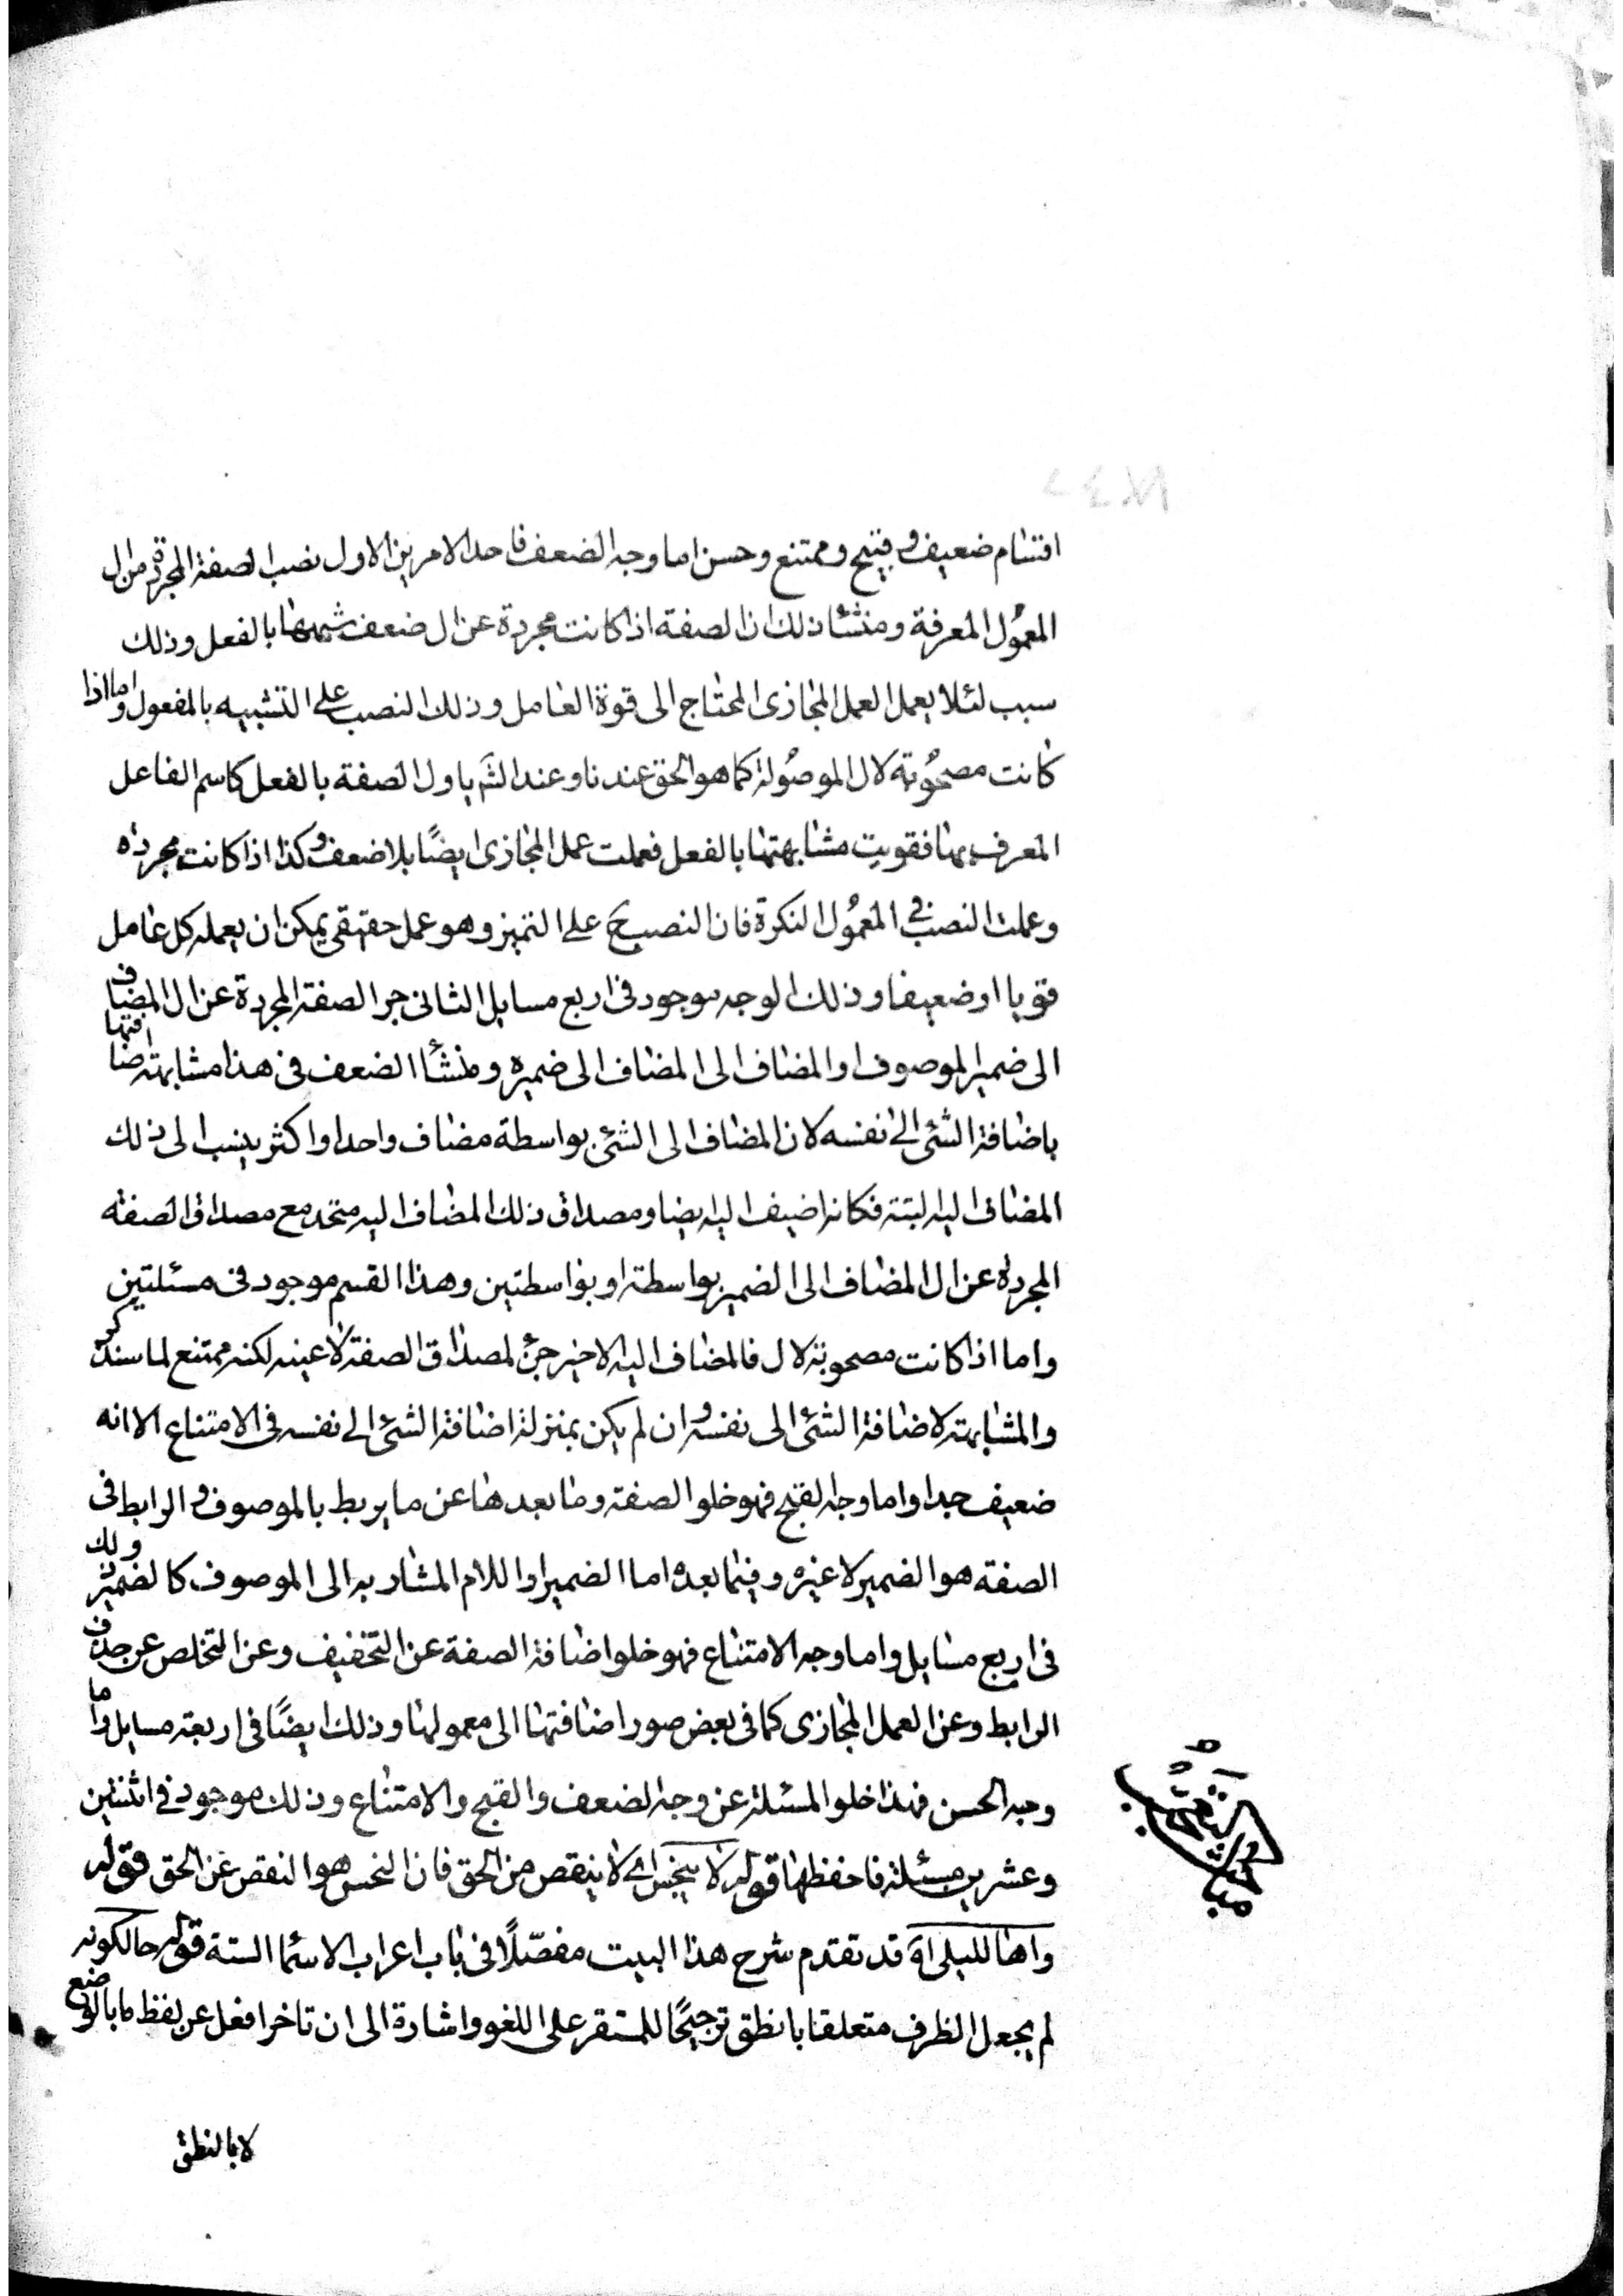 اقسام ضعيف وقبيح وممتنع وحسن اما وجه الضعف فاحد الامرين الاول نصب الصفة المجردة من ال
المعمول المعرفة ومنشئا ذلك ان الصفة اذا كانت مجردة عن ال ضعف شبهها بالفعل وذلك
سبب لئلا يعمل العمل المجازى المحتاج الى قوة العامل وذلك النصب على التشبيه بالمفعول واما اذا
كانت مصحوبة لال الموصولة كما هو الحق عندنا وعند الش ياول الصفة بالفعل كاسم الفاعل
المعرف بها فقويت مشابهتها بالفعل فعملت عمل المجازى ايضًا بلا ضعف وكذا اذا كانت مجردة
وعملت النصب فى المعمول النكرة فان النصب ح على التميز وهو عمل حقيقى يمكن ان يعمله كل عامل
قويا او ضعيفا وذلك الوجه موجود فى اربع مسايل الثانى جر الصفة المجردة عن ال المضاف
الى ضمير الموصوف او المضاف الى المضاف الى ضميره ومنشأ الضعف فى هذا مشابهة اضافتها
باضافة الشئ الى نفسه لان المضاف الى الشئ بواسطة مضاف واحد او اكثر ينسب الى ذلك
المضاف اليه البتة فكانه اضيف اليه ايضا ومصداق ذلك المضاف اليه متحد مع مصداق الصفة
المجردة عن ال المضاف الى الضمير بواسطة او بواسطتين وهذا القسم موجود فى مسئلتين
واما اذا كانت مصحوبة لال فالمضاف اليه الاخير جزء لمصداق الصفة لا عينه لكنه ممتنع لما سنذكر
والمشابهة لاضافة الشئ الى نفسه وان لم يكن بمنزلة اضافة الشئ الى نفسه فى الامتناع الا انه
ضعيف جدا واما وجه القبح فهو خلو الصفة وما بعدها عن ما يربط بالموصوف والرابط فى
الصفة هو الضمير لا غيره وفيما بعده اما الضمير او اللام المشار به الى الموصوف كالضمير وذلك
فى اربع مسايل واما وجه الامتناع فهو خلو اضافة الصفة عن التخفيف وعن التخلص عن حذف
الرابط وعن العمل المجازى كما فى بعض صور اضافتها الى معمولها وذلك ايضًا فى اربعة مسايل واما
وجه الحسن فهذا خلو المسئلة عن وجه الضعف والقبح والامتناع وذلك موجود فى اثنتين
وعشرين مسئلة فاحفظها قوله لا يبخس اى لا ينقص من الحق فان البخس هو النقص عن الحق قوله
واها لليلى اه قد تقدم شرح هذا البيت مفصّلًا فى باب اعراب الاسئما الستة قوله حالكونه
لم يجعل الظرف متعلقا بانطق ترجيحًا للمستقر على اللغو واشارة الى ان تاخر افعل عن لفظ ما بالوضع
لا بالنطق